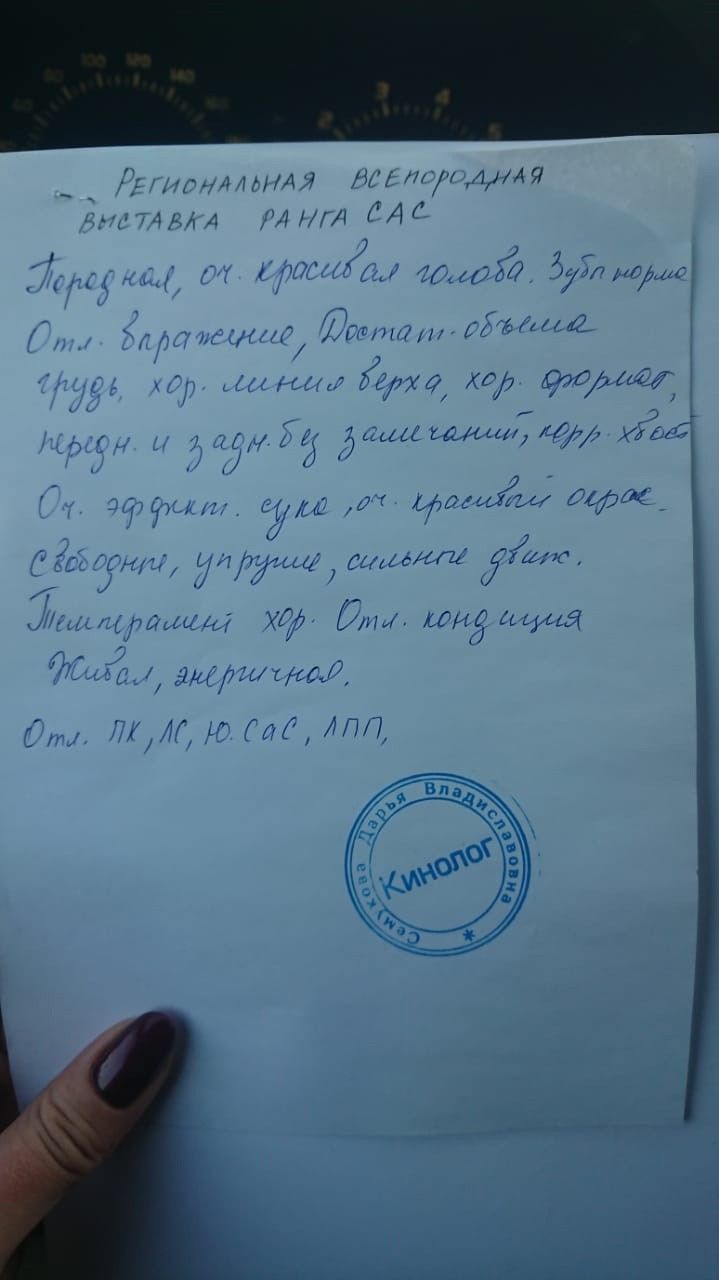 60
80
100
120
140
160
2
3
4
5
РЕГИОНАЛЬНАЯ ВСЕПОРОДНАЯ
ВЫСТАВКА РАНГА САС
Породная, оч. красивая голова. Зубы норма
Отл. выражение, Достат. объема
грудь, хор. линия верха, хор. формат,
передн. и задн. без замечаний, корр. хвост
Оч. эффект. сука, оч. красивый окрас.
Свободные, упругие, сильные движ.
Темперамент хор. Отл. кондиция
Живая, энергичная.
Отл. ПК, ЛС, Ю. САС, ЛПП,
Семукова Дарья Владиславовна *
Кинолог